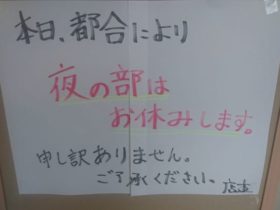 本日、都合により
夜の部は
お休みします。
申し訳ありません。
ご了承ください。 店主